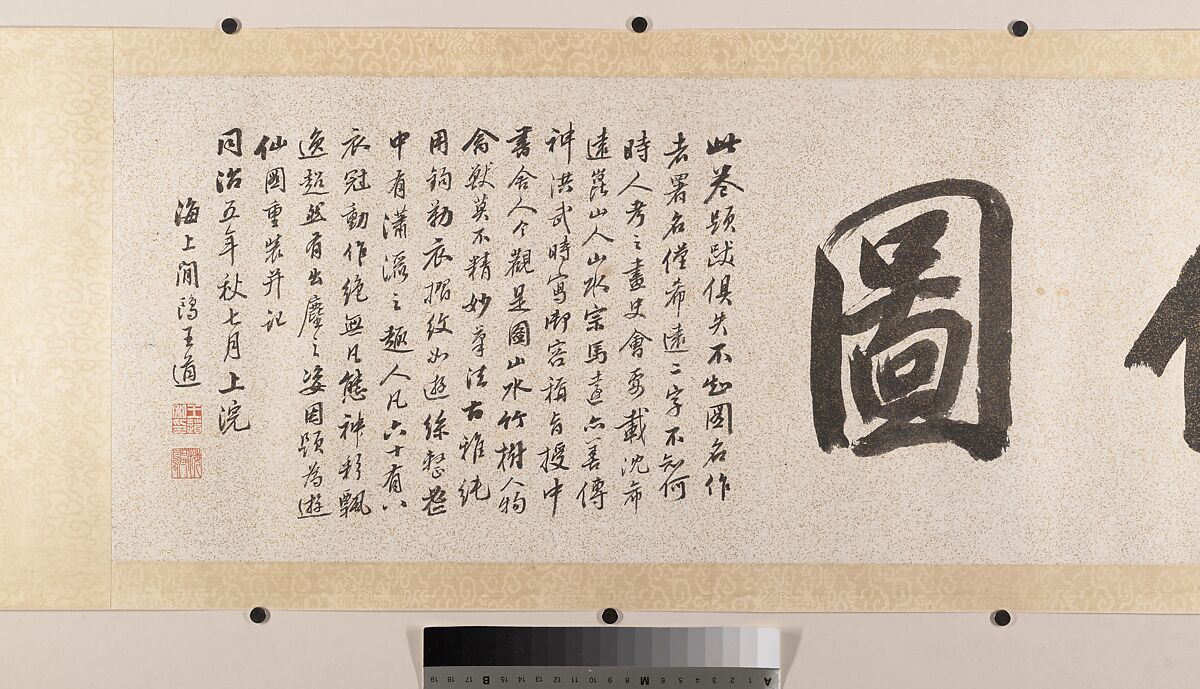 圖
此卷題跋俱失不知圖名作
者署名僅希遠二字不知何
時人考之畫史會要載沈希
遠崑山人山水宗馬遠亦善傳
神洪武時寫御容稱旨授中
書舍人今觀是圖山水竹樹人物
禽獸莫不精妙筆法古雅純
用鉤勒衣摺紋如遊絲整莊
中有瀟灑之趣人凡六十有八
衣冠動作絕無凡態神彩飄
逸超然有出塵之姿因題為遊
仙圖重裝并記
同治五年秋七月上浣
海上閒鷗王道
19 18 17 16 15 B 14 13 12 11 10 9 8 M 7 6 5 4 3 2 1 A